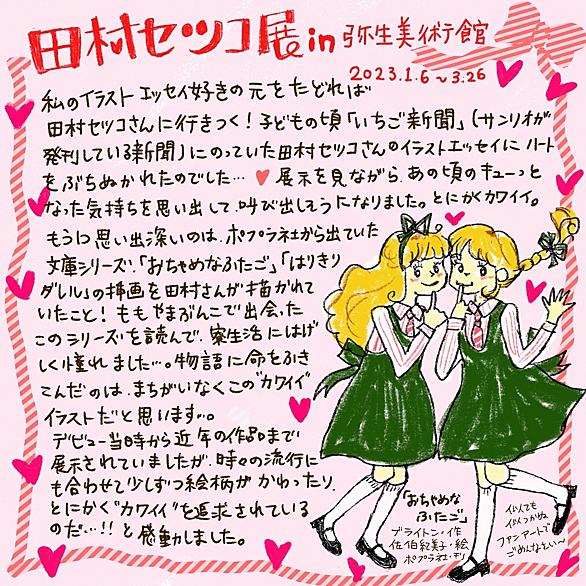 田村セツコ展 in 弥生美術館
2023.1.6〜3.26
私のイラストエッセイ好きの元をたどれば
田村セツコさんに行きつく！子どもの頃「いちご新聞」（サンリオが
発刊している新聞）にのっていた田村セツコさんのイラストエッセイにハート
をぶちぬかれたのでした…♥展示を見ながら、あの頃のキューっと
なった気持ちを思い出して、叫び出しそうになりました。とにかくカワイイ。
もう1つ思い出深いのは、ポプラ社から出ていた
文庫シリーズ、「おちゃめなふたご」「はりきり
ダレル」の挿画を田村さんが描かれて
いたこと！ももやまぶんこで出会った
このシリーズを読んで、寮生活にはげ
しく憧れました…。物語に命をふき
こんだのは、まちがいなくこの"カワイイ"
イラストだと思います…。
デビュー当時から近年の作品まで
展示されていましたが、時々の流行に
も合わせて少しずつ絵柄がかわったり、
とにかく"カワイイ"を追求されている
のだ…!!と感動しました。
「おちゃめな
ふたご」
ブライトン・作
佐伯紀美子・絵
ポプラ社・刊
似ても
似つかぬ
ファンアートで
ごめんなさい〜